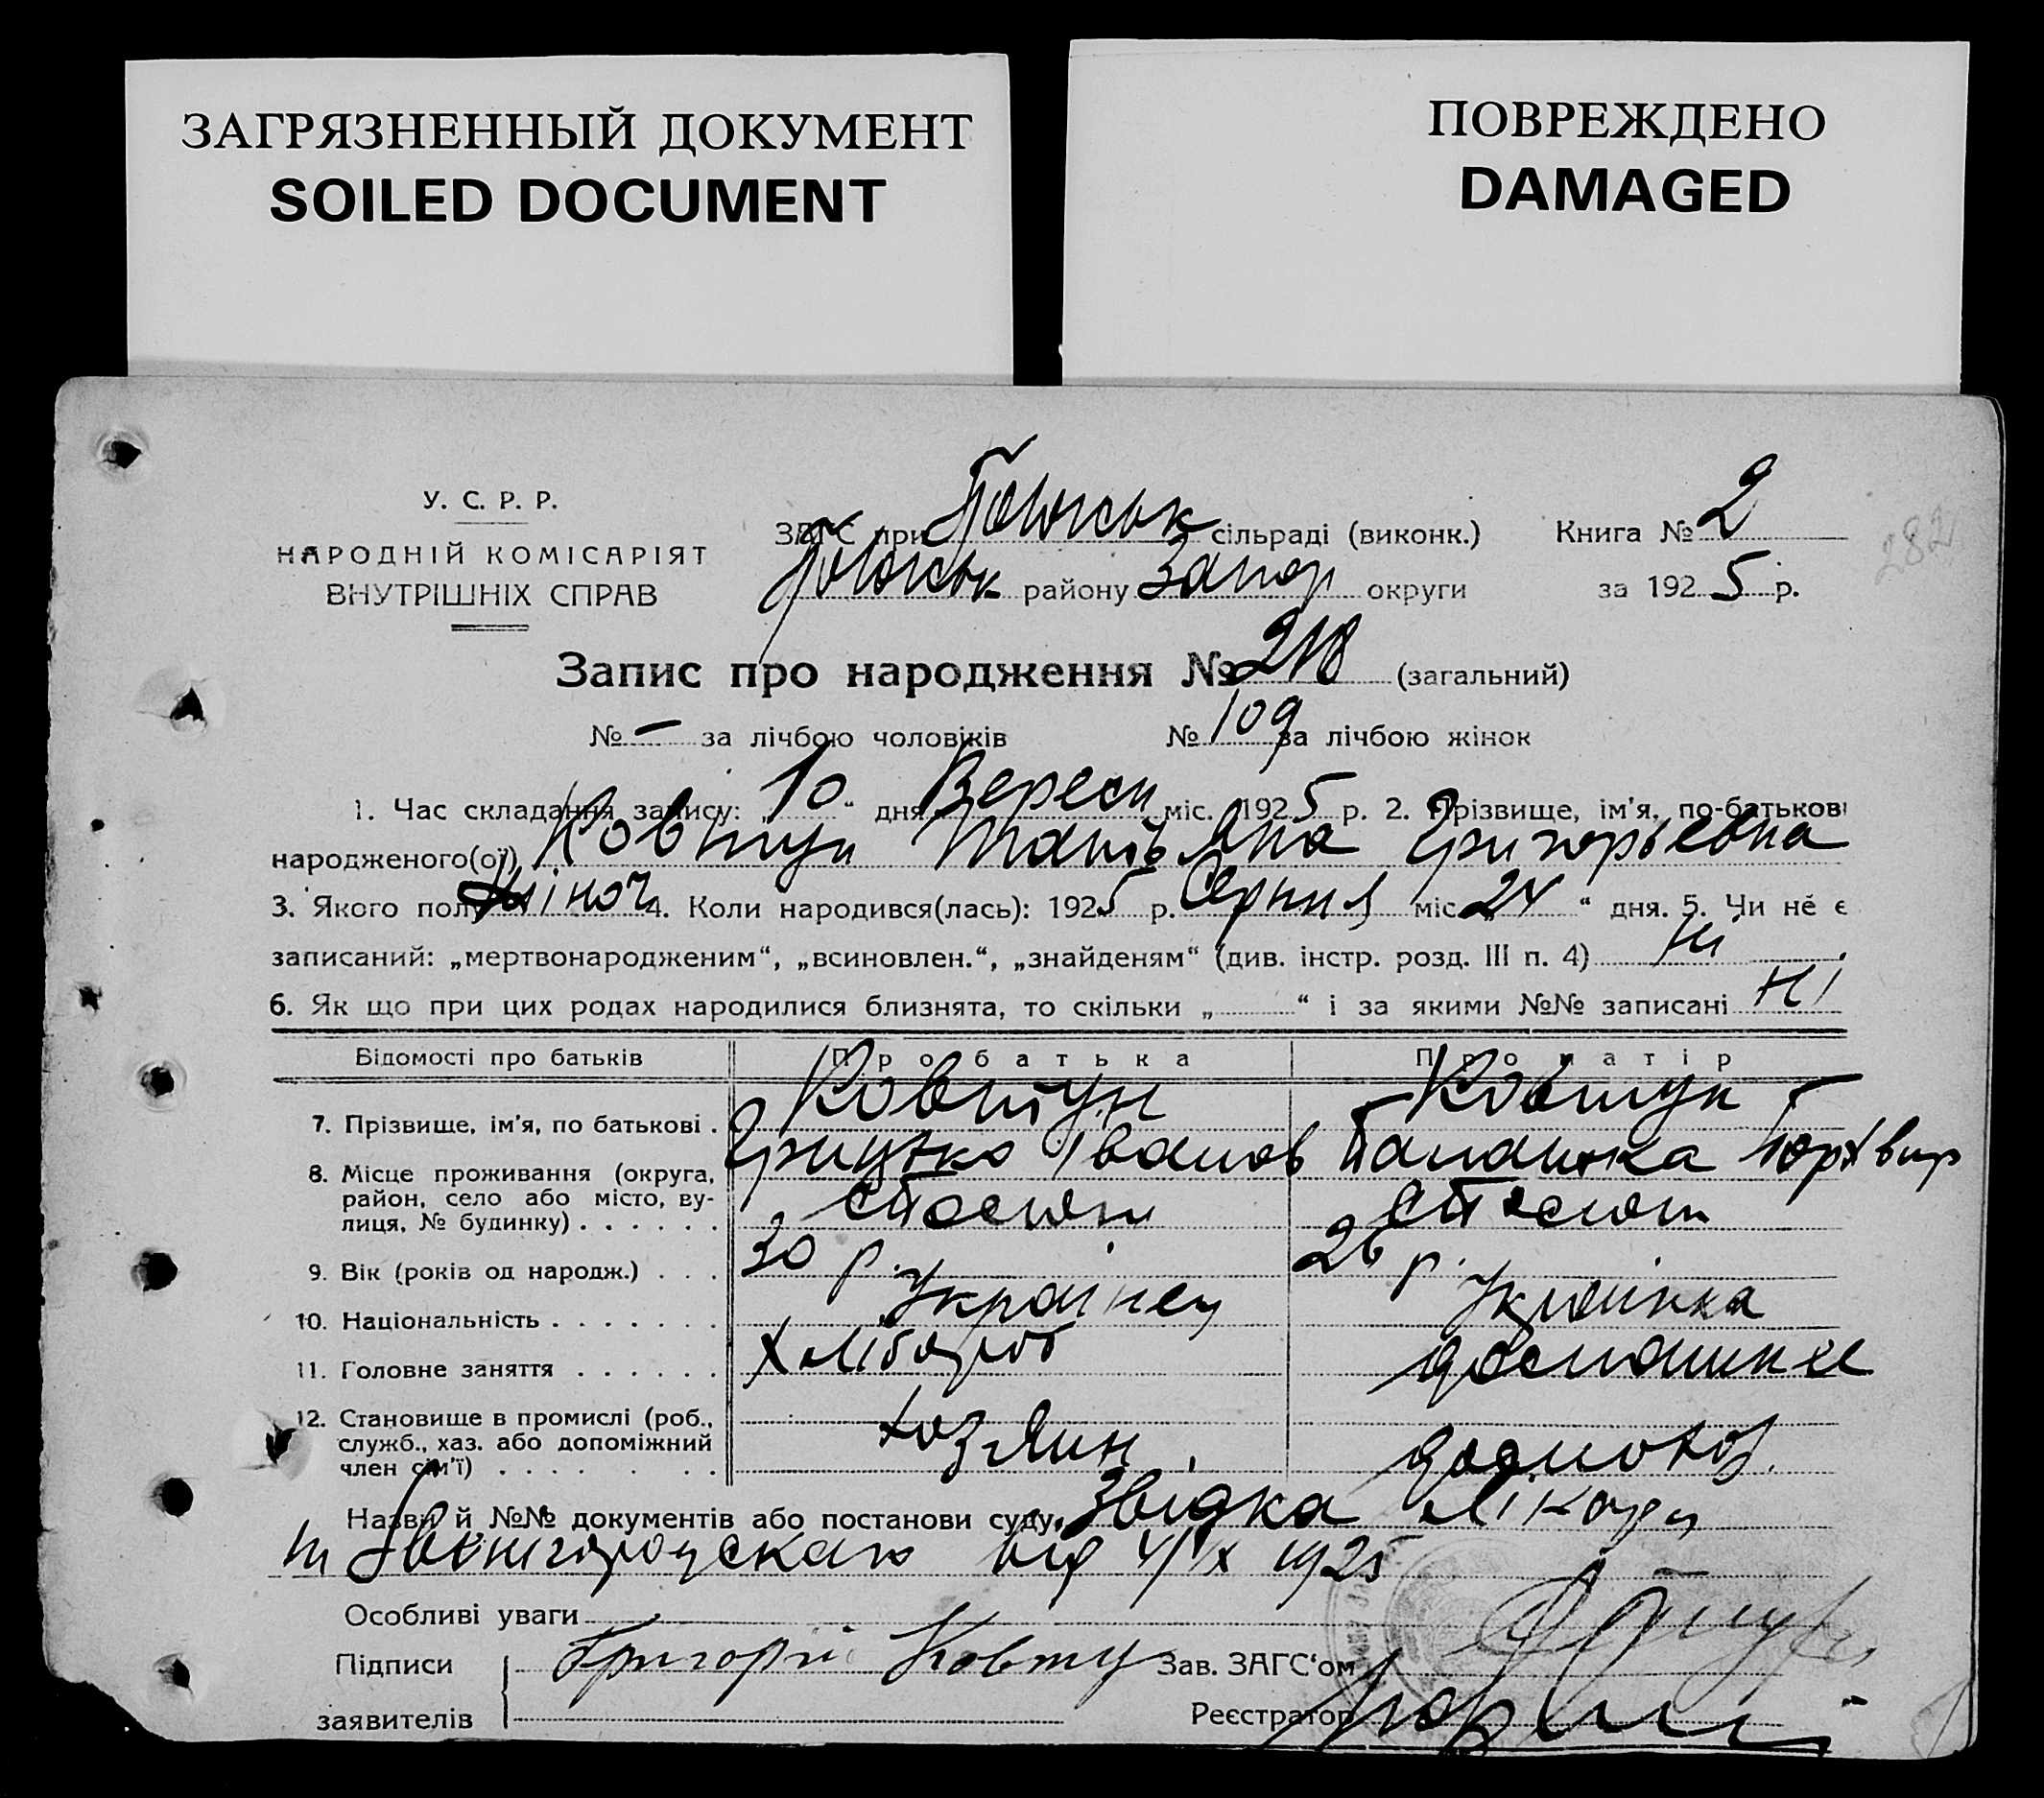 ЗАГРЯЗНЕННЫЙ ДОКУМЕНТ
SOILED DOCUMENT
ПОВРЕЖДЕНО
DAMAGED
282
У. С. Р. Р.
НАРОДНІЙ КОМІСАРІЯТ
ВНУТРІШНІХ СПРАВ
ЗАГС при сільраді (виконк.) Книга № 2
району Запор округи за 1925 р.
Запис про народження № 218 (загальний)
№ – за лічбою чоловіків № 109 за лічбою жінок
1. Час складання запису: 10 “ дня Вересн міс. 1925 р. 2. Прізвище, ім'я, по-батькові
народженого(ої) Ковтун Татьяна Григорьевна
3. Якого полу жіноч 4. Коли народився(лась): 1925 р. Серпня міс. „24“ дня. 5. Чи не є
записаний: „мертвонародженим“, „всиновлен.“, „знайденям“ (див. інстр. розд. III п. 4) Ні
6. Як що при цих родах народилися близнята, то скільки „ “ і за якими №№ записані Ні
Відомості про батьків Про батька Про матір
7. Прізвище, ім'я, по батькові . Ковтун Грицько Іванов Ковтун
8. Місце проживання (округа, район, село або місто, вулиця, № будинку) . . . . . .
9. Вік (років од народж.) . . . 30 р. 26 р.
10. Національність . . . . . . . Українец Украінка
11. Головне заняття . . . . . . Хлібороб домашнє
12. Становище в промислі (роб., служб., хаз. або допоміжний член сім'ї) . . . . . . . хозяин домохоз.
Назви й №№ документів або постанови суду. Звідка Лікаря
від 4/IX 1925
Особливі уваги
Підписи Григорій Ковтун Зав. ЗАГС'ом
заявителів Реєстратор